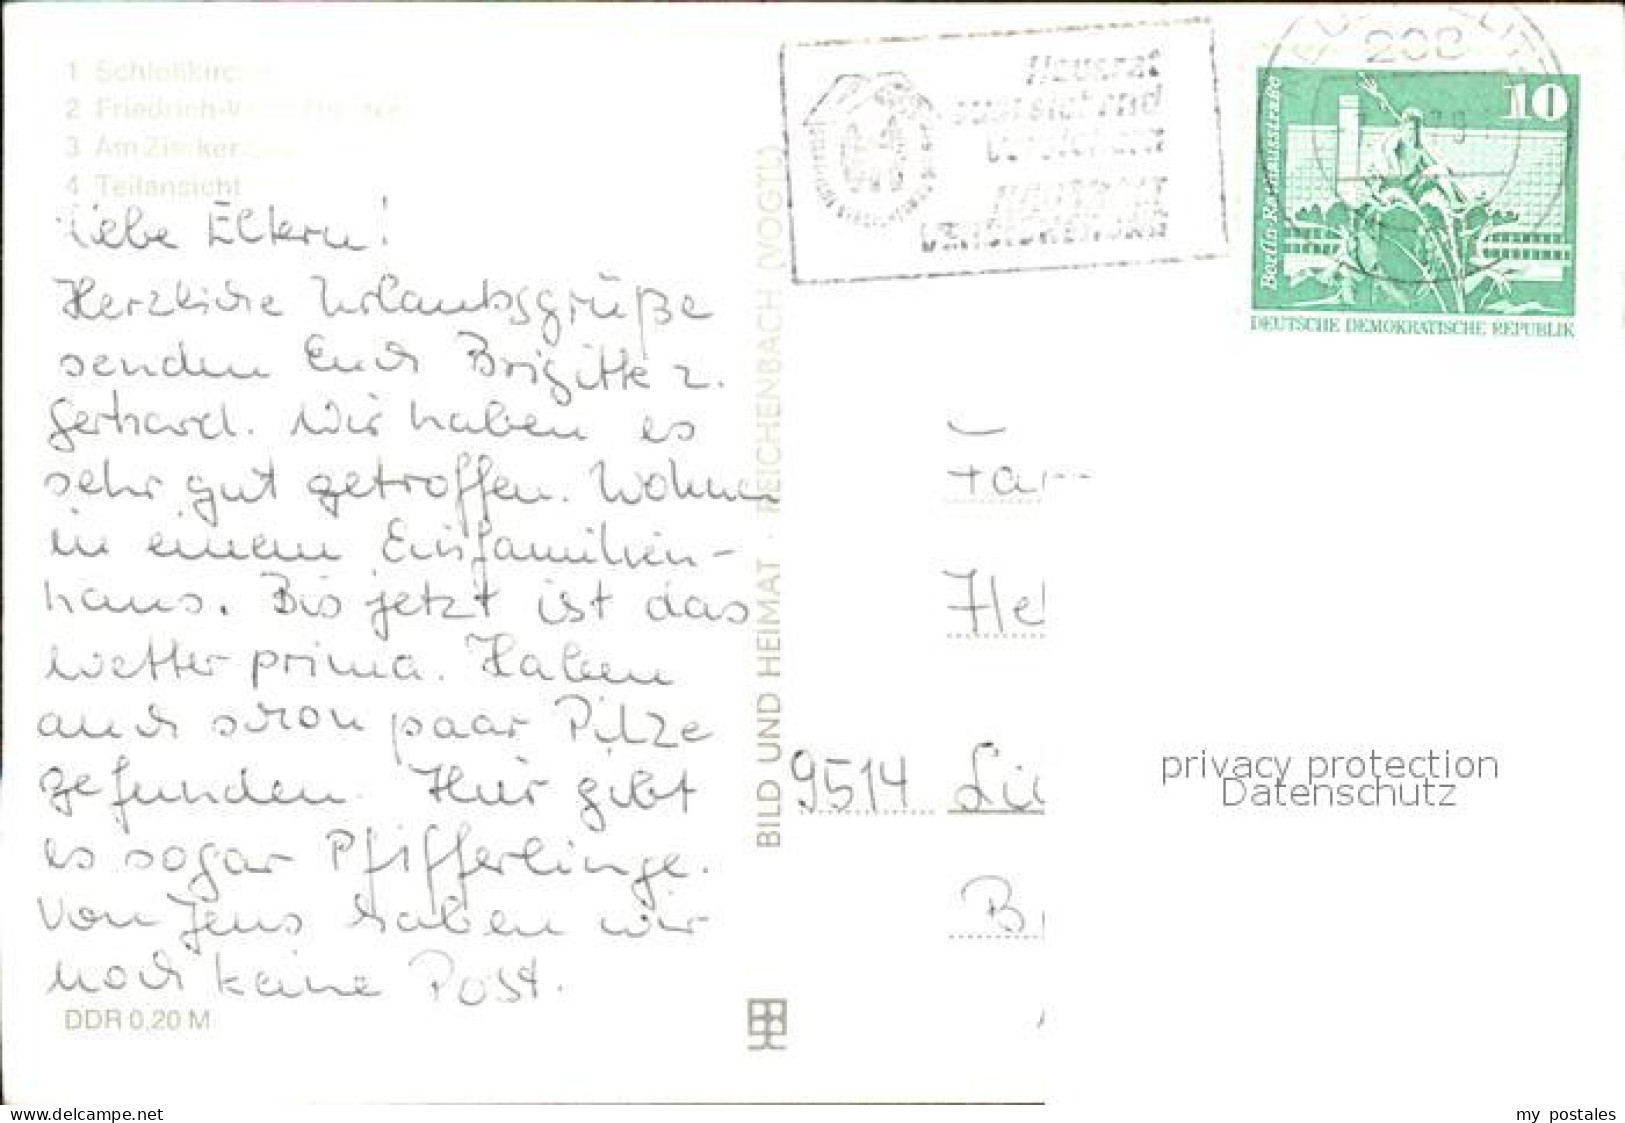 1 Schloßkirche
2 Friedrich-
3 Am Zierker
4 Teilansicht
Liebe Eltern!
Herzliche Urlaubsgrüße
senden Euch Brigitte u.
Gerhard. Wir haben es
sehr gut getroffen. Wohnen
in einem Einfamilien-
haus. Bis jetzt ist das
Wetter prima. Haben
auch schon paar Pilze
gefunden. Hier gibt
es sogar Pfifferlinge.
Von Jens haben wir
noch keine Post.
DDR 0,20 M
BILD UND HEIMAT · REICHENBACH (VOGTL)
Hausrat
ausreichend
versichern
208
10
Berlin-Rathausstraße
DEUTSCHE DEMOKRATISCHE REPUBLIK
Fam
9514
privacy protection
Datenschutz
www.delcampe.net
my_postales